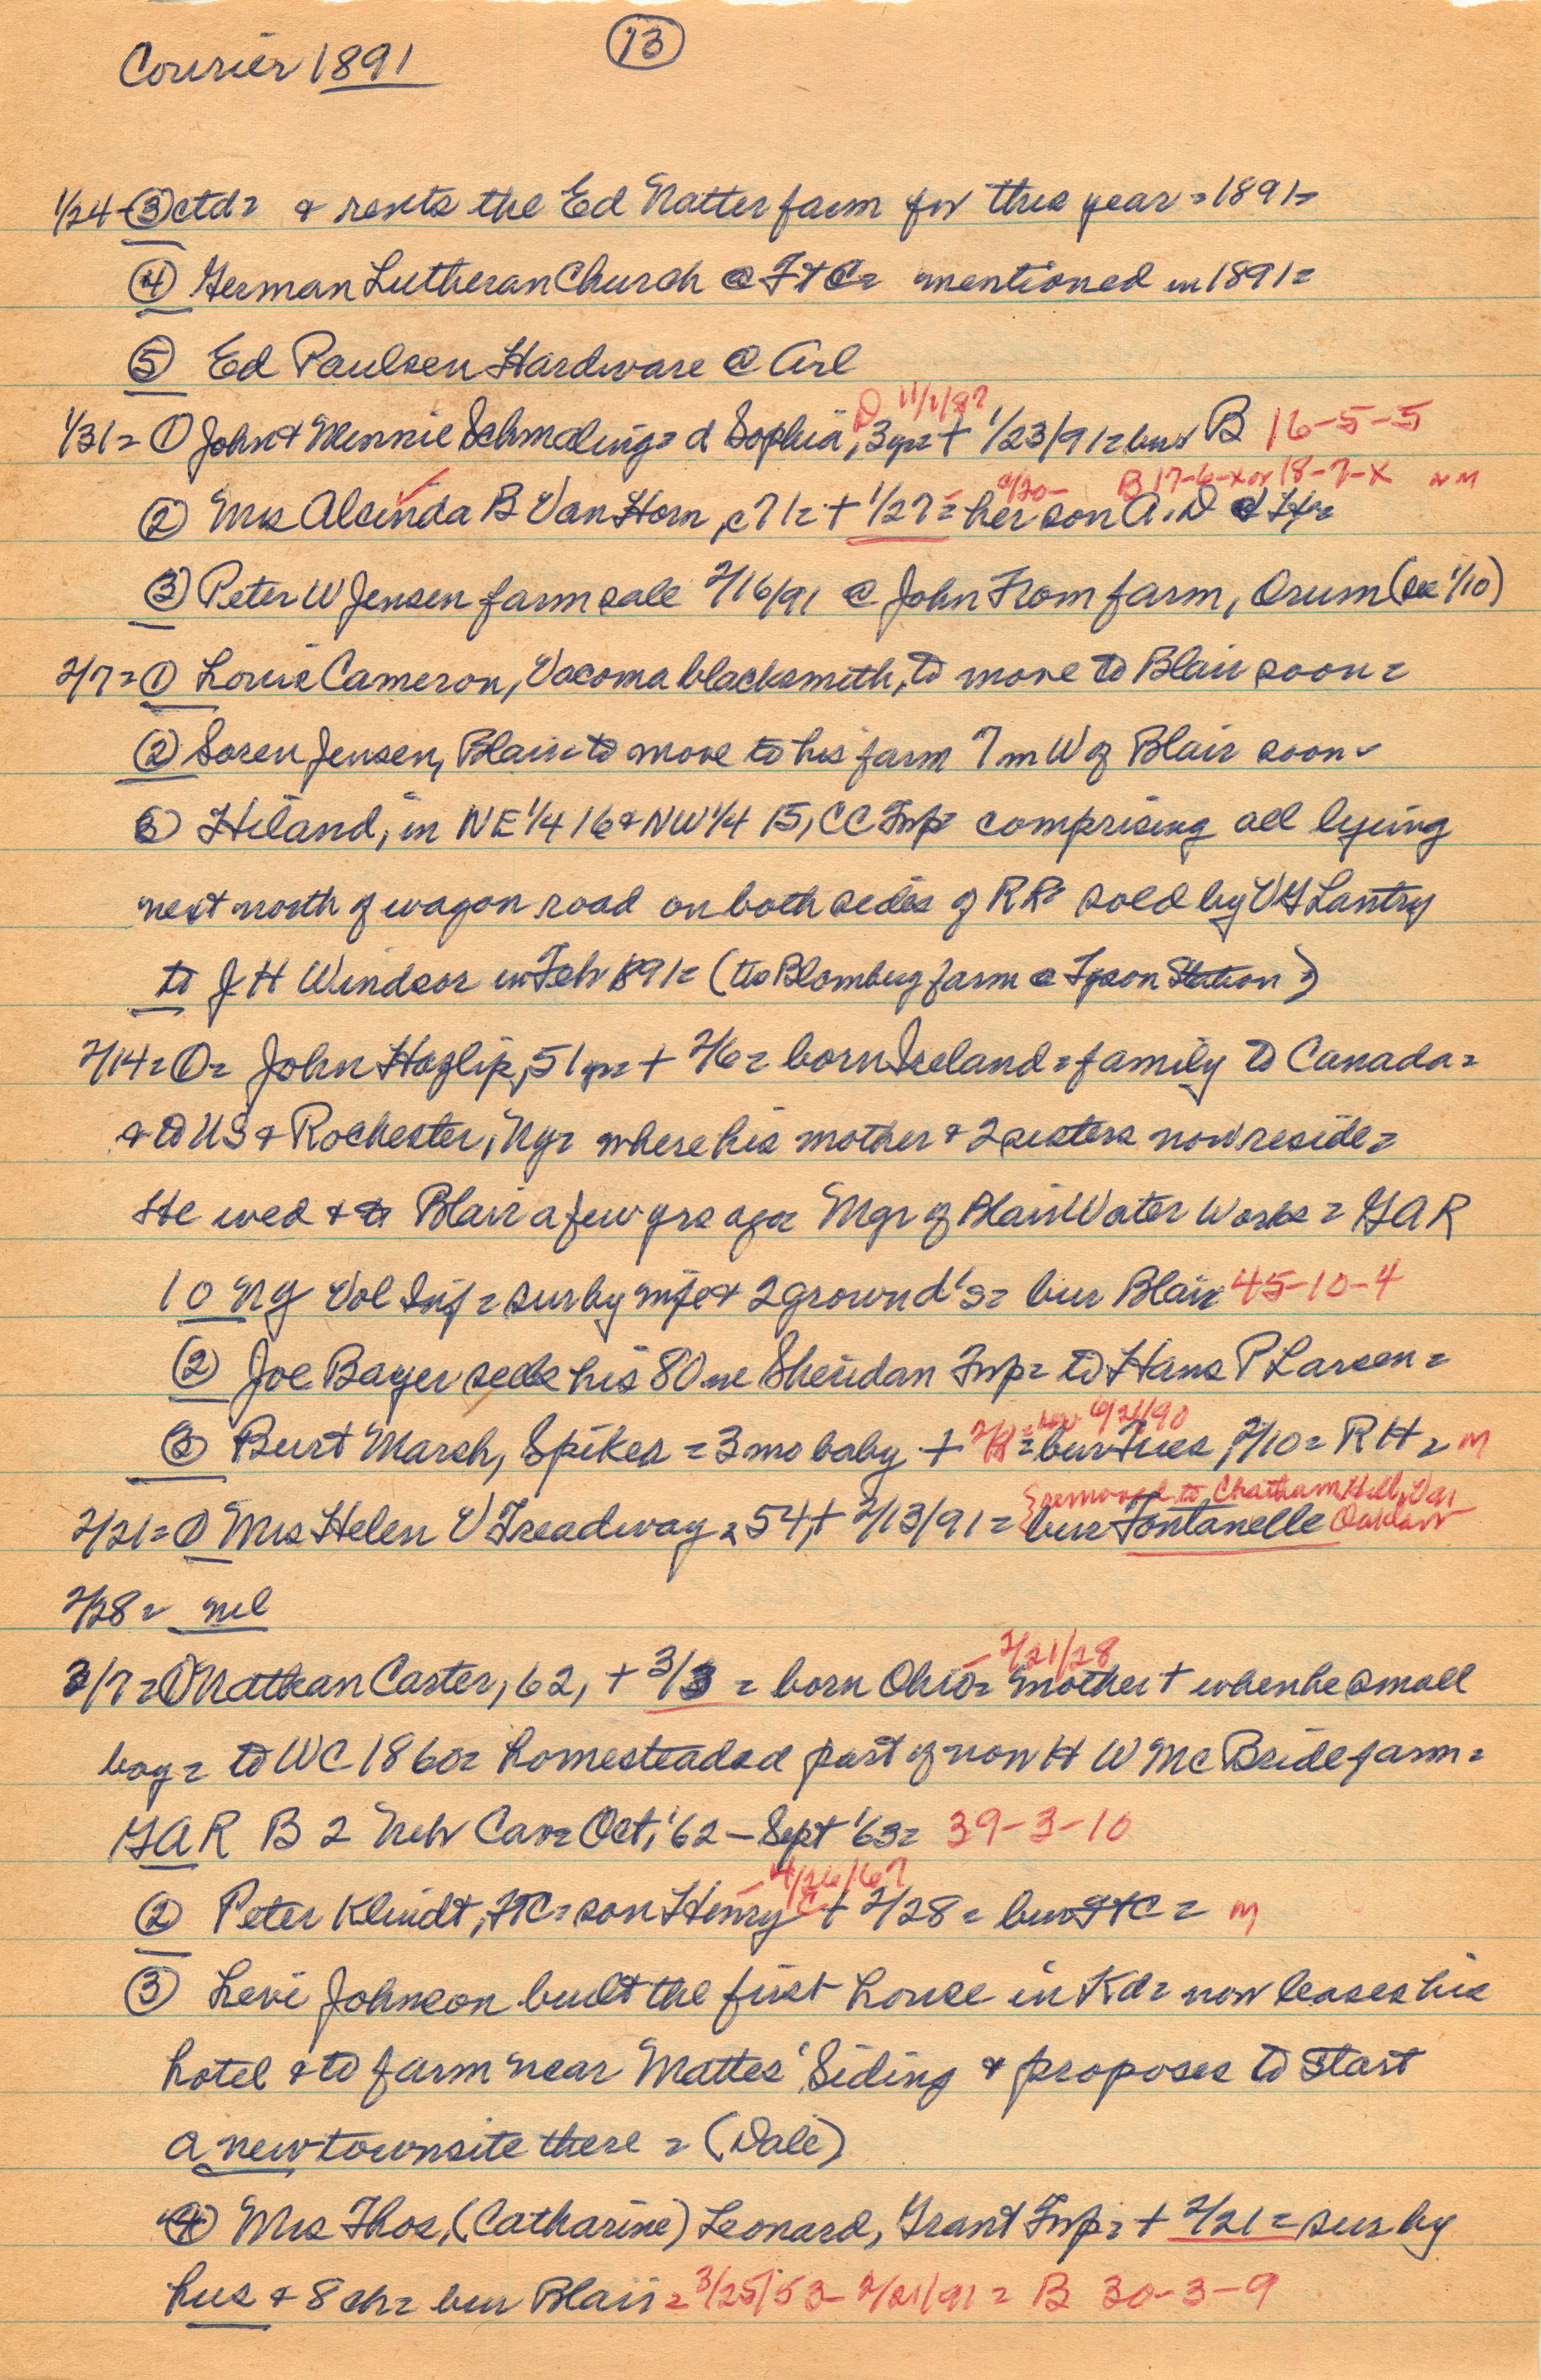 Courier 1891
13
1/24 - 3 ctd = & rents the Ed Natter farm for this year = 1891 =
4 German Lutheran Church @ Ft C = mentioned in 1891 =
5 Ed Paulsen Hardware @ Arl
D 11/1/87
1/31 = 1 John & Minnie Schmeling = d Sophia, 3 yr = + 1/23/91 = bur B 16-5-5
c/20 - B 17-6-x or 18-7-x N M
2 Mrs Alcinda B Van Horn, c71 = + 1/27 = her son A. D
3 Peter W Jensen farm sale 2/16/91 @ John From farm, Orum (see 1/10)
2/7 = 1 Louis Cameron, Vacoma blacksmith, to move to Blair soon =
2 Soren Jensen, Blair = to move to his farm 7 m W of Blair soon
3 Hiland, in NE 1/4 16 & NW 1/4 15, CC Twp = comprising all lying
next north of wagon road on both sides of RR = sold by V G Lantry
to J H Windsor in Feb 1891 = (the Blomberg farm @ Tyson Station)
2/14 = 1 = John Hazlip, 51 yr = + 2/6 = born Ireland = family to Canada =
& to US & Rochester, Ny = where his mother & 2 sisters now reside =
He wed & to Blair a few yrs ago = Mgr of Blair Water Works = GAR
10 NY Vol Inf = sur by wife & 2 grown d's = bur Blair 45-10-4
2 Joe Bayer sells his 80 ne Sheridan Twp = to Hans P Larsen =
bor 6/21/90
3 Burt Marsh, Spikes = 3 mo baby + 2/8 = bur Tues, 2/10 = R H = M
removed to Chatham Hill, Va
2/21 = 1 Mrs Helen V Treadway = 54, + 2/13/91 = bur Fontanelle
2/28 = nil
2/21/28
3/7 = 1 Nathan Carter, 62, + 3/3 = born Ohio = mother + when he small
boy = to WC 1860 = homesteaded part of now H W McBride farm =
GAR B 2 Neb Cav = Oct, '62 - Sept '63 = 39-3-10
4/26/67
2 Peter Klindt, FTC = son Henry C + 2/28 = bur FTC = M
3 Levi Johnson built the first house in Kd = now leases his
hotel & to farm near Mattes' Siding & proposes to start
a new townsite there = (Dale)
4 Mrs Thos, (Catharine) Leonard, Grant Twp = + 2/21 = sur by
hus & 8 ch = bur Blair = 3/25/53 - 2/21/91 = B 30-3-9